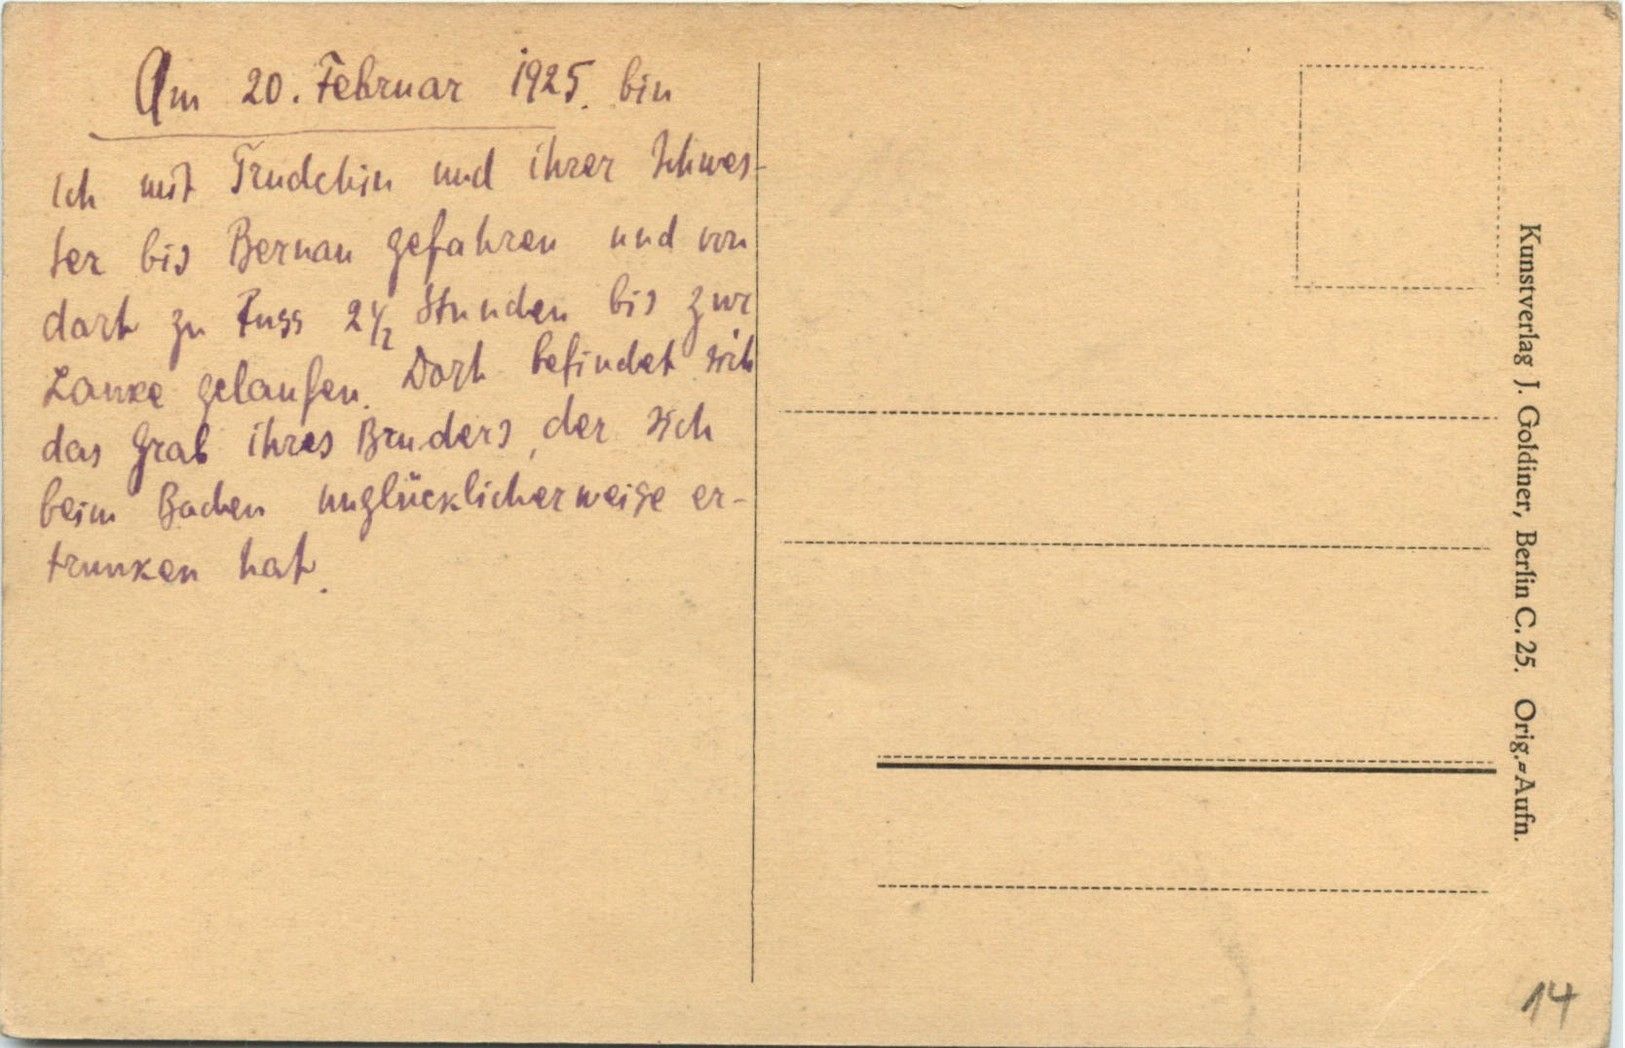 Am 20. Februar 1925. bin
ich mit Trudchin und ihrer Schwes-
ter bis Bernau gefahren und von
dort zu Fuss 2 1/2 Stunden bis zur
Lanke gelaufen. Dort befindet sich
das Grab ihres Bruders, der sich
beim Baden unglücklicherweise er-
trunken hat.
Kunstverlag J. Goldiner, Berlin C. 25. Orig.=Aufn.
14